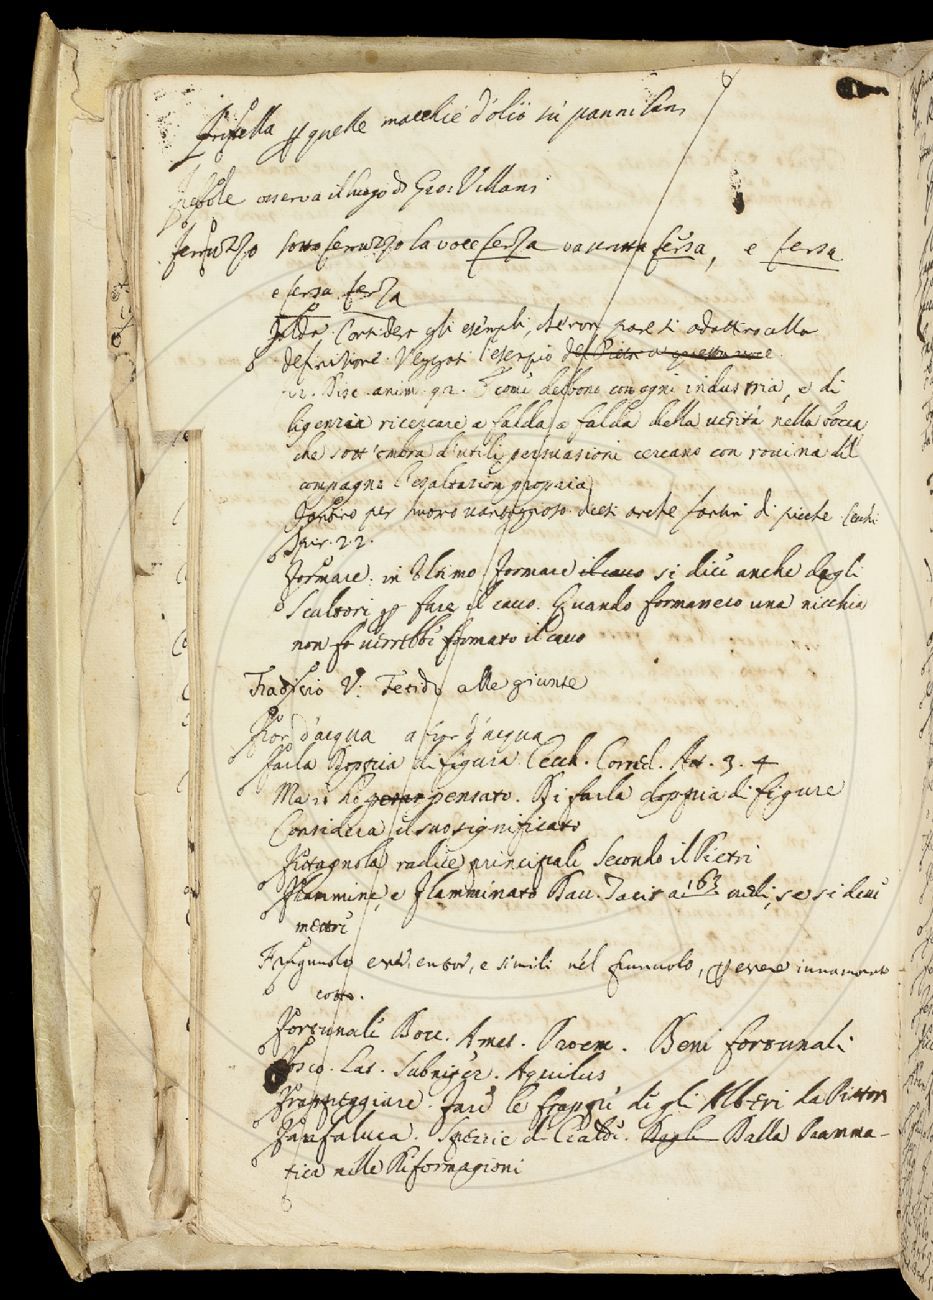 Frittella p quelle macchie d'olio sù panni lani
Fiesole osserva il luogo di Gio: Villani
Ferruzzo sotto ferruzzo la voce ferza va unita fersa, e fersa
e fersa ferza
Falda. Consider gli esempi, che non pare si adattino alla
definizione. Veggasi l'esempio del Pietr a questa voce
Disc. anim. 92. E come debbono con ogni industria, e di
ligenzia ricercare a falda a falda della verità nella bocca
che sott'ombra d'utili persuasioni cercano con rovina del
compagno l'esaltazion propria
per nuovo vantaggioso. dieti anche di picche. Cecchi
Spir. 2. 2.
Formare: in Ultimo formare il cavo si dice anche degli
Scultori p fare il cavo. Quando formavero una nicchia
non fo verrebbe formato il cavo
Fradicio V: Fetido alle giunte
Fior d'acqua a fior d'acqua
Farla Doppia di figura. Cecch. Corred. At. 3. 4
Ma io ho pensato. Di farla doppia di figure
Considera il suo significato
radice principale secondo il Pietri
Flammine, e Flamminato Dav. Tacit a 163 vedi, se si deve
mettere
Frugnolo entr. entrar, e simili nel frugnolo, p essere innamorat
cotto.
Fortunali Bocc. Amet. Proem. Beni fortunali
Fosco. Lat. Subniger. Aquilus
Frappeggiare. Fare le frappe degli Alberi da Pittori
Fanfaluca. Spezie di Cialde. Dalla Pramma-
tica nelle Riformagioni